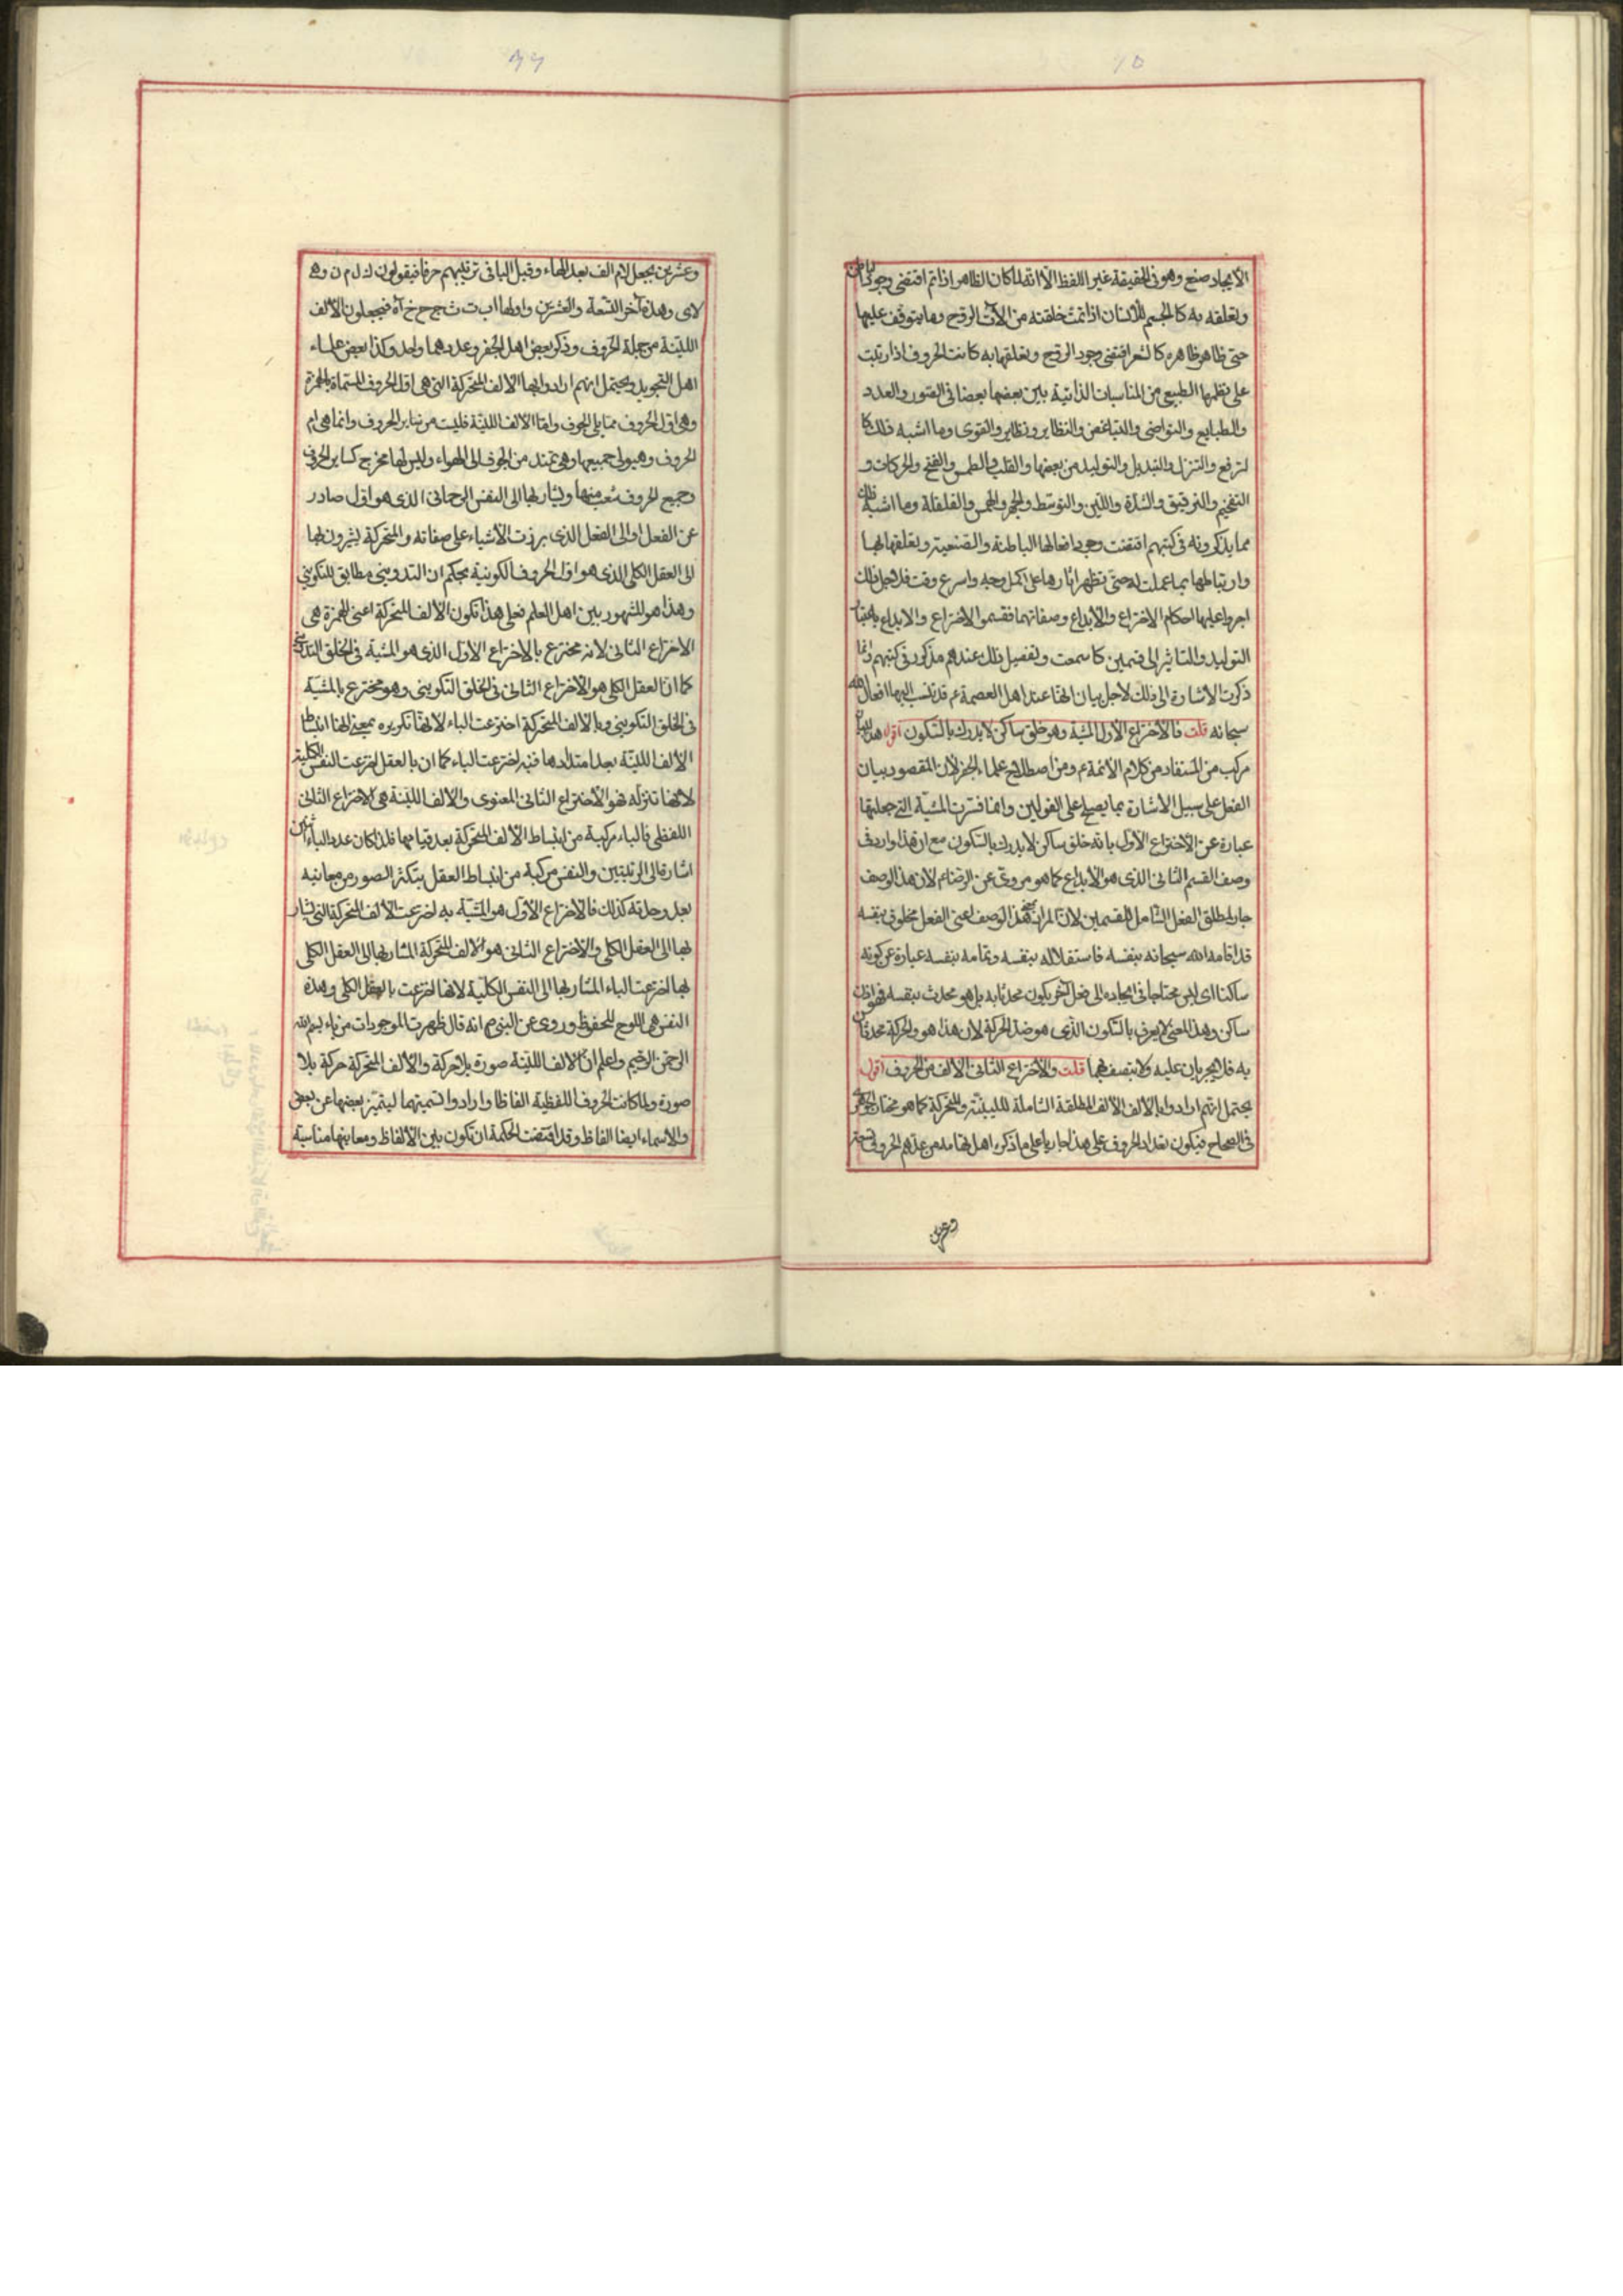 ٦٥
الايجاد صنع وهو فى الحقيقة غير اللفظ الا انه لما كان الظاهر اذا تم اقتضى وجود باطن
وتعلقه به كالجسم للانسان اذا تمت خلقته من الآت الروح وما يتوقف عليها
حتى ظاهر ظاهره كالشعر اقتضى وجود الروح وتعلقها به كانت الحروف اذا رتبت
على نظمها الطبيعى من المناسبات الذاتية بين بعضها بعضا فى الصور والعدد
والطبايع والتواخى والتباغض والنظاير ونظاير والقوى وما اشبه ذلك كا
لترفع والتنزل والتبديل والتوليد من بعضها والقلب والطمس والفتح والحركات و
التفخيم والترقيق والشدة واللين والتوسط والجهر والهمس والقلقلة وما اشبه ذلك
مما يذكرونه فى كتبهم اقتضت وجود افعالها الباطنة والصنعية وتعلقها بها
وارتباطها بما عملت له حتى تظهر اثارها على اكمل وجه واسرع وقت فلاجل ذلك
اجروا عليها احكام الاختراع والابداع وصفاتهما فقسموا الاختراع والابداع باعتبار
التوليد والتاثير الى قسمين كما سمعت وتفصيل ذلك عندهم مذكور فى كتبهم وانما
ذكرت الاشارة الى ذلك لاجل بيان انها عند اهل العصمة ع قد تنسب اليها افعال الله
سبحانه قلت فالاختراع الاول المشية وهو خلق ساكن لا يدرك بالسكون اقول هذا بيان
مركب من المستفاد من كلام الائمة ع ومن اصطلاح علماء الجفر لان المقصود بيان
الفعل على سبيل الاشارة بما يصح على القولين وانما فسرت المشية التى جعلتها
عبارة عن الاختراع الاول بانه خلق ساكن لا يدرك بالسكون مع ان هذا وارد فى
وصف القسم الثانى الذى هو الابداع كما هو مروى عن الرضا ع لان هذا الوصف
جار لمطلق الفعل الشامل للقسمين لان المراد بهذا الوصف اعنى الفعل مخلوق بنفسه
قد اقامه الله سبحانه بنفسه فاستقلاله بنفسه وتمامه بنفسه عبارة عن كونه
ساكنا اى ليس محتاجا فى ايجاده الى فعل آخر يكون محدثا به بل هو محدث بنفسه فهو اذن
ساكن وهذا المعنى لا يعرف بالسكون الذى هو ضد الحركة لان هذا هو والحركة محدثان
به فلا يجريان عليه ولا يتصف بهما قلت والاختراع الثانى الالف من الحروف اقول
يحتمل انهم ارادوا بالالف الالف المطلقة الشاملة للليّنة والمتحركة كما هو مختار الجوهرى
فى الصحاح فيكون تعداد الحروف على هذا جاريا على ما ذكره اهل من عدهم الحروف تسعة
وعشرين
٦٦
وعشرين بجعل لام الف بعد الهاء وقبل اليا فى ترتيبهم حرفا فيقولون ك ل م ن و ه
لا ى وهذه آخر التسعة والعشرين واولها ا ب ت ث ج ح خ آه فيجعلون الالف
الليّنة من جملة الحروف وذكر بعض اهل الجفر وعددهما واحد وكذا بعض علماء
اهل التجويد ويحتمل انهم ارادوا بها الالف المتحركة التى هى اول الحروف المسماة بالهمزة
وهى اول الحروف مما يلى الجوف واما الالف اللينة فليست من ساير الحروف وانما هى ام
الحروف وهيولى جميعها وهى تمتد من الجوف الى الهواء وليس لها مخرج كساير الحروف
وجميع الحروف شعب منها ويشار بها الى النفس الرحمانى الذى هو اول صادر
عن الفعل او الى الفعل الذى برزت الاشياء على صفاته والمتحركة يشيرون بها
الى العقل الكلى الذى هو اول الحروف الكونية بحكم ان التدوينى مطابق للتكوينى
وهذا هو المشهور بين اهل العلم فعلى هذا تكون الالف المتحركة اعنى الهمزة هى
الاختراع الثانى لانه مخترع بالاختراع الاول الذى هو المشية فى الخلق التدوينى
كما ان العقل الكلى هو الاختراع الثانى فى الخلق التكوينى وهو مخترع بالمشية
فى الخلق التكوينى وبالالف المتحركة اخترعت الباء لانها تكريره بمعنى انها انبساط
الالف اللينة بعد امتدادها فبه اخترعت الباء كما ان بالعقل اخترعت النفس الكلية
لانها تنزله فهو الاختراع الثانى المعنوى والالف اللينة هى الاختراع الثانى
اللفظى فالباء مركبة من انبساط الالف المتحركة بعد قيامها فلذا كان عدد الباء اثنين
اشارة الى الرتبتين والنفس مركبة من انبساط العقل بتكثر الصور من معانيه
بعد وحدته كذلك فالاختراع الاول هو المشية به اخترعت الالف المتحركة التى يشار
بها الى العقل الكلى والاختراع الثانى هو الالف المتحركة المشار بها الى العقل الكلى
بها اخترعت الباء المشار بها الى النفس الكلية لانها اخترعت بالعقل الكلى وهذه
النفس هى اللوح المحفوظ وروى عن النبى ص انه قال ظهرت الموجودات من باء بسم الله
الرحمن الرحيم واعلم ان الالف اللينة صورة بلا حركة والالف المتحركة حركة بلا
صورة ولما كانت الحروف اللفظية الفاظا وارادوا تسميتهما ليتميز بعضها عن بعض
والاسماء ايضا الفاظ وقد اقتضت الحكمة ان تكون بين الالفاظ ومعانيها مناسبة